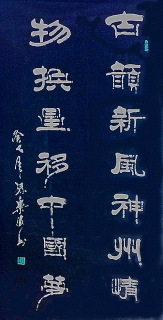 古韻新風神州情
物换星移中國夢